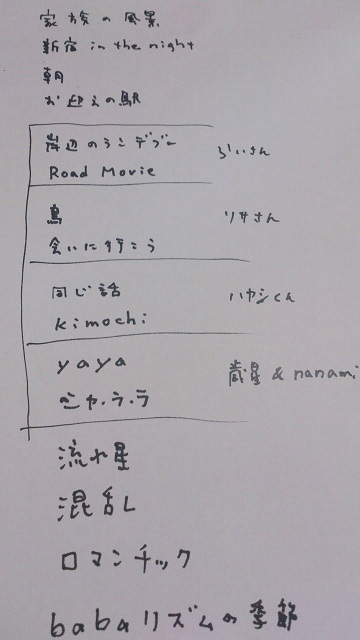 家族の風景
新宿 in the night
朝
お迎えの駅
岸辺のランデブー
Road Movie らいさん
鳥 リサさん
会いに行こう
同じ話 ハヤシくん
kimochi
yaya 歳星 & nanami
シャ・ラ・ラ
流れ星
混乱
ロマンチック
babaリズムの季節